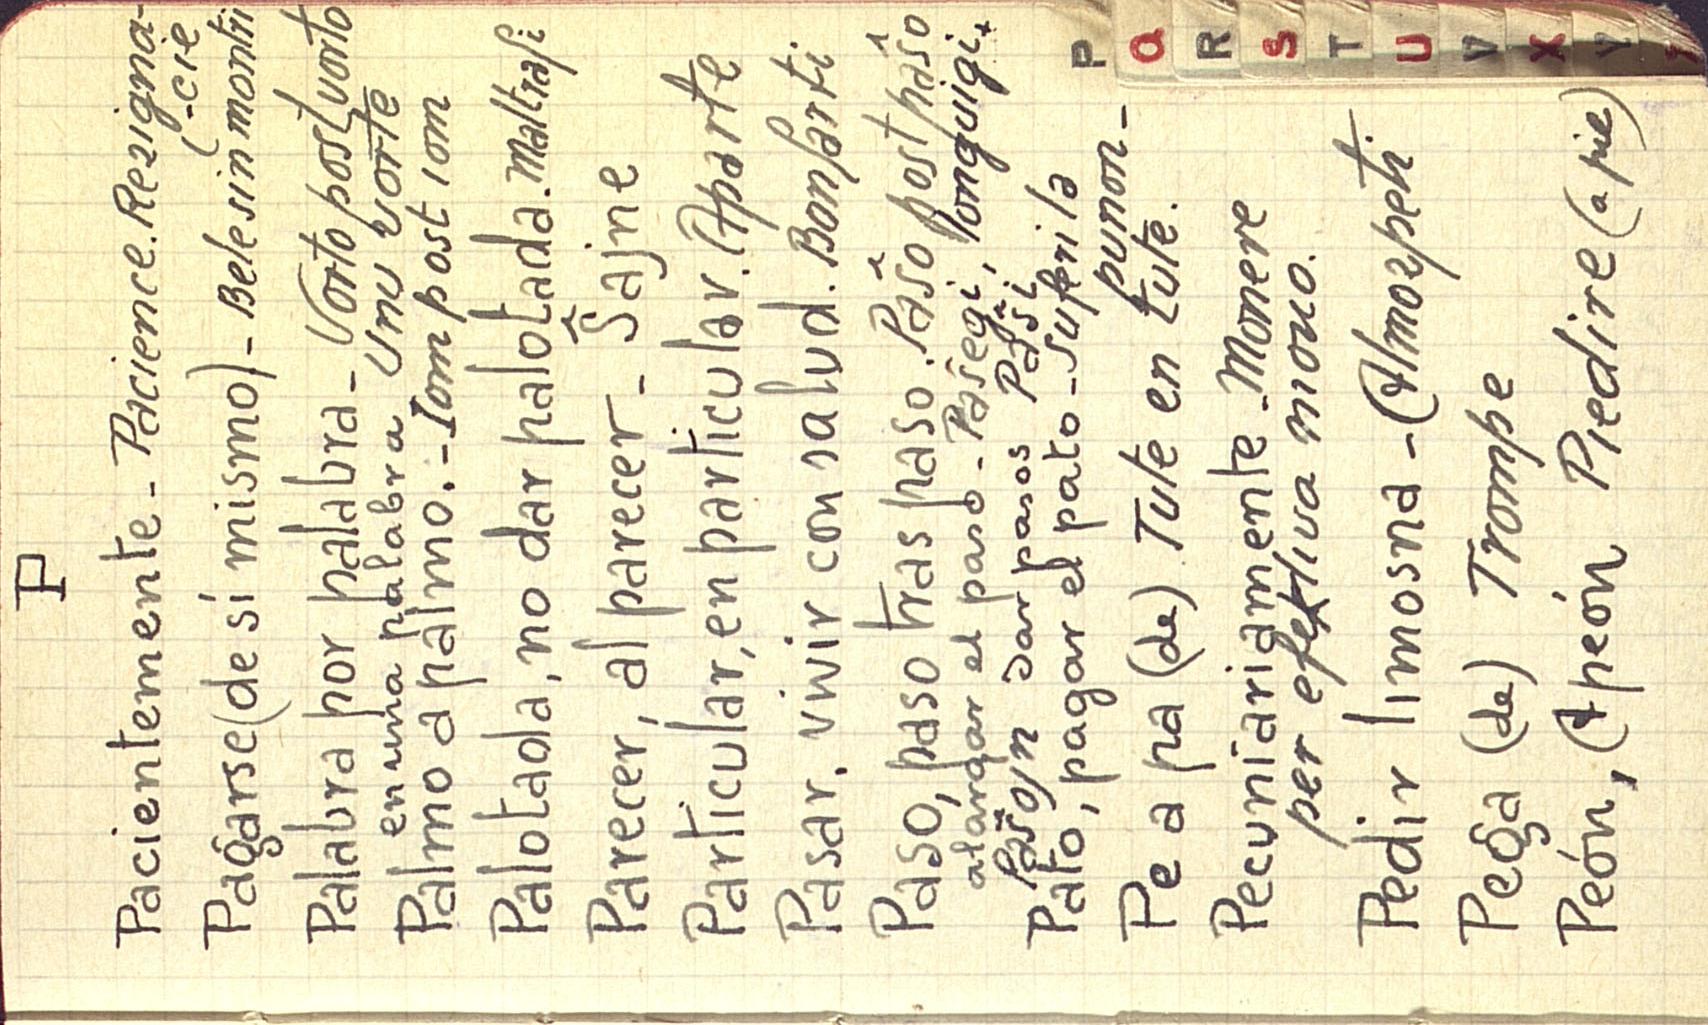 P
Pacientemente - Pacience. Rezigna-
(-cie
Pagarse (de sí mismo) - Bele sin montri
Palabra por palabra - Vorto post vorto
en una palabra Unu vorte
Palmo a palmo. - Iom post iom
Palotada, no dar palotada. Maltrafi
Parecer, al parecer - Ŝajne
Particular, en particular. Aparte
Pasar. vivir con salud. Bonfarti
Paso, paso tras paso. Paŝo post paŝo
alargar el paso - Paŝegi, longuigi
Paŝojn dar pasos Paŝi
Pato, pagar el pato - suferi la
punon -
Pe a pa (de) Tute en tute.
Pecuniariamente - Monere
per efektiva mono.
Pedir limosna - Almozpeti.
Pega (de) Trompe
Peón, (A peón Piedire (a pie)
P
Q
R
S
T
U
V
X
Y